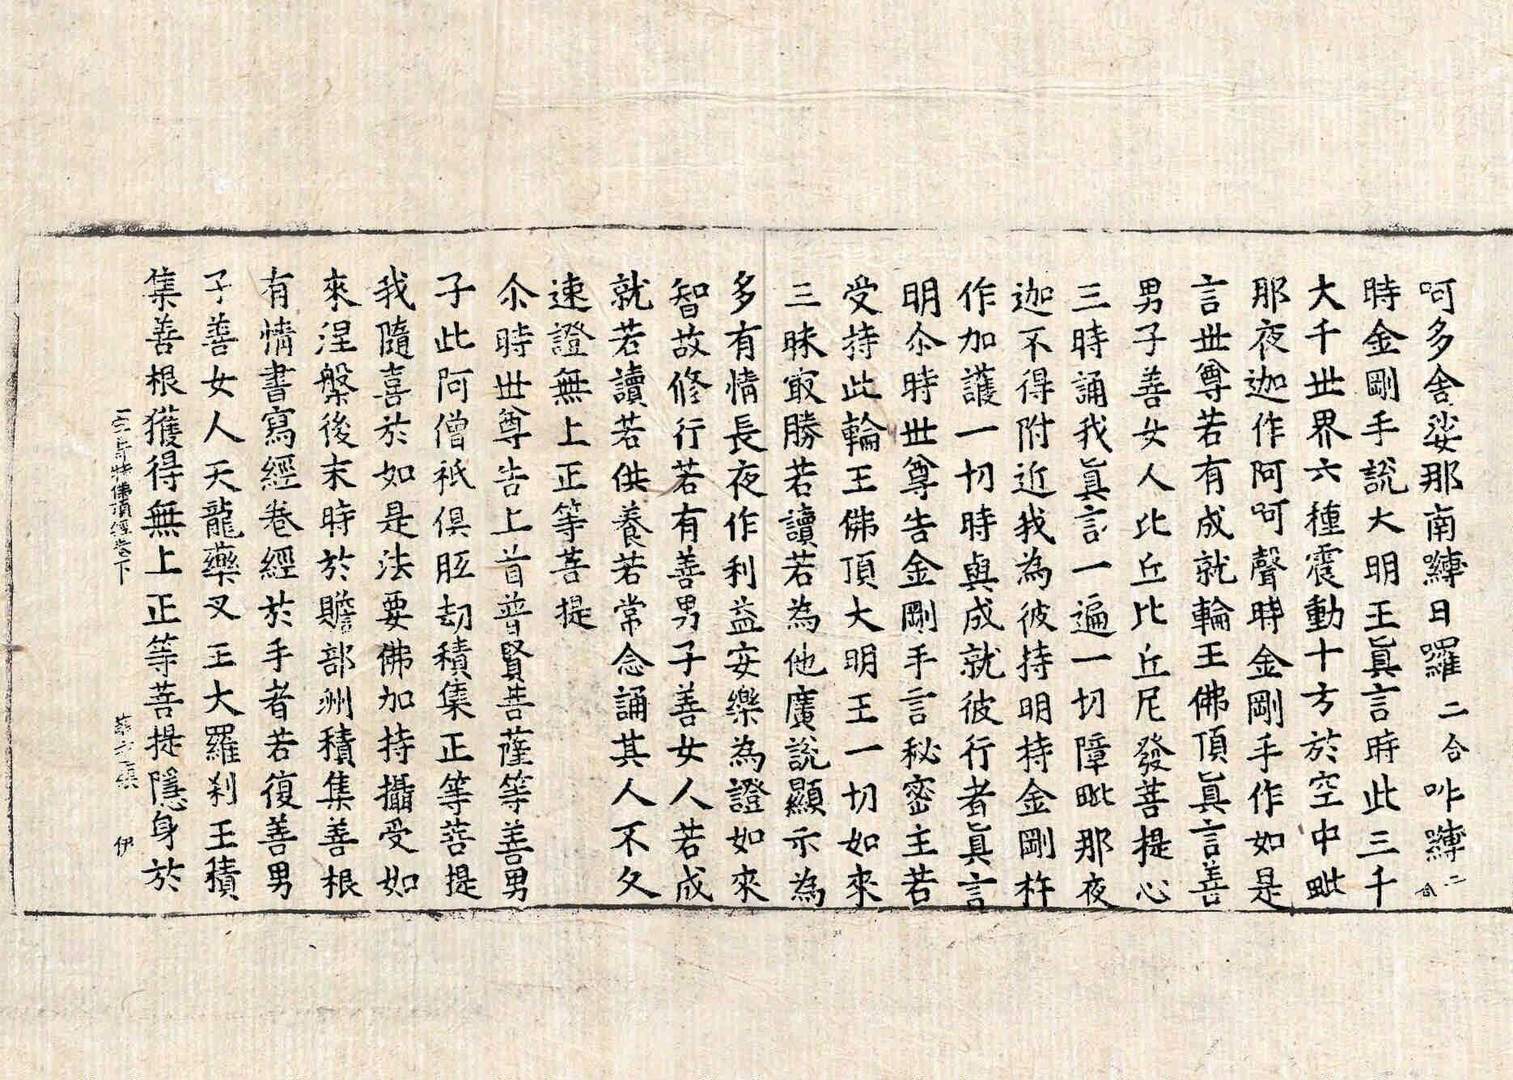 呵多舍娑那南嚩日囉二合吽嚩二
時金剛手說大明王眞言時此三千
大千丗界六種震動十方於空中毗
那夜迦作阿呵聲時金剛手作如是
言丗尊若有成就輪王佛頂眞言善
男子善女人比丘比丘尼發菩提心
三時誦我眞言一遍一切障毗那夜
迦不得附近我為彼持明持金剛杵
作加護一切時與成就彼行者眞言
明尒時丗尊告金剛手言秘密主若
受持此輪王佛頂大明王一切如來
三昧㝡勝若讀若為他廣說顯示為
多有情長夜作利益安樂為證如來
智故修行若有善男子善女人若成
就若讀若供養若常念誦其人不久
速證無上正等菩提
尒時丗尊告上首普賢菩薩等善男
子此阿僧祇俱胝劫積集正等菩提
我隨喜於如是法要佛加持攝受如
來涅槃後末時於贍部洲積集善根
有情書寫經卷經於手者若復善男
子善女人天龍藥叉王大羅刹王積
集善根獲得無上正等菩提隱身於
佛頂經卷下 伊